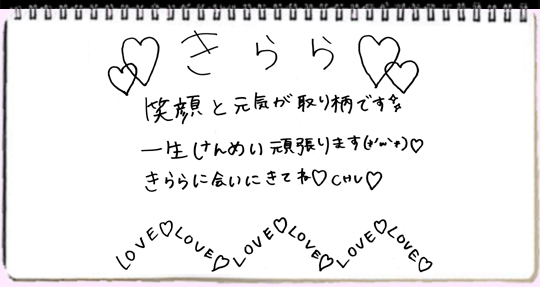 ♡♡きらら♡♡
笑顔と元気が取り柄です☆
一生けんめい頑張ります(*'ω'*)♡
きららに会いにきてね♡CHU♡
LOVE♡LOVE♡LOVE♡LOVE♡LOVE♡LOVE♡